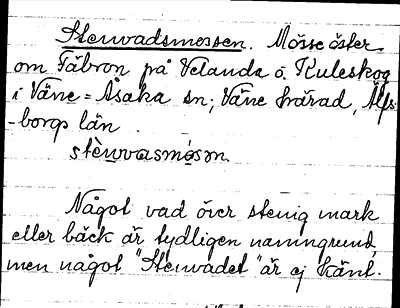 Stenvadsmossen. Mosse öster
om Fäbron på Velanda o. Kuleskog
i Väne-Åsaka sn, Väne härad, Älfs-
-borgs län.
stènvasmósṃ.
Något vad över stenig mark
eller bäck är tydligen namngrund,
men något "Stenvadet" är ej känt.